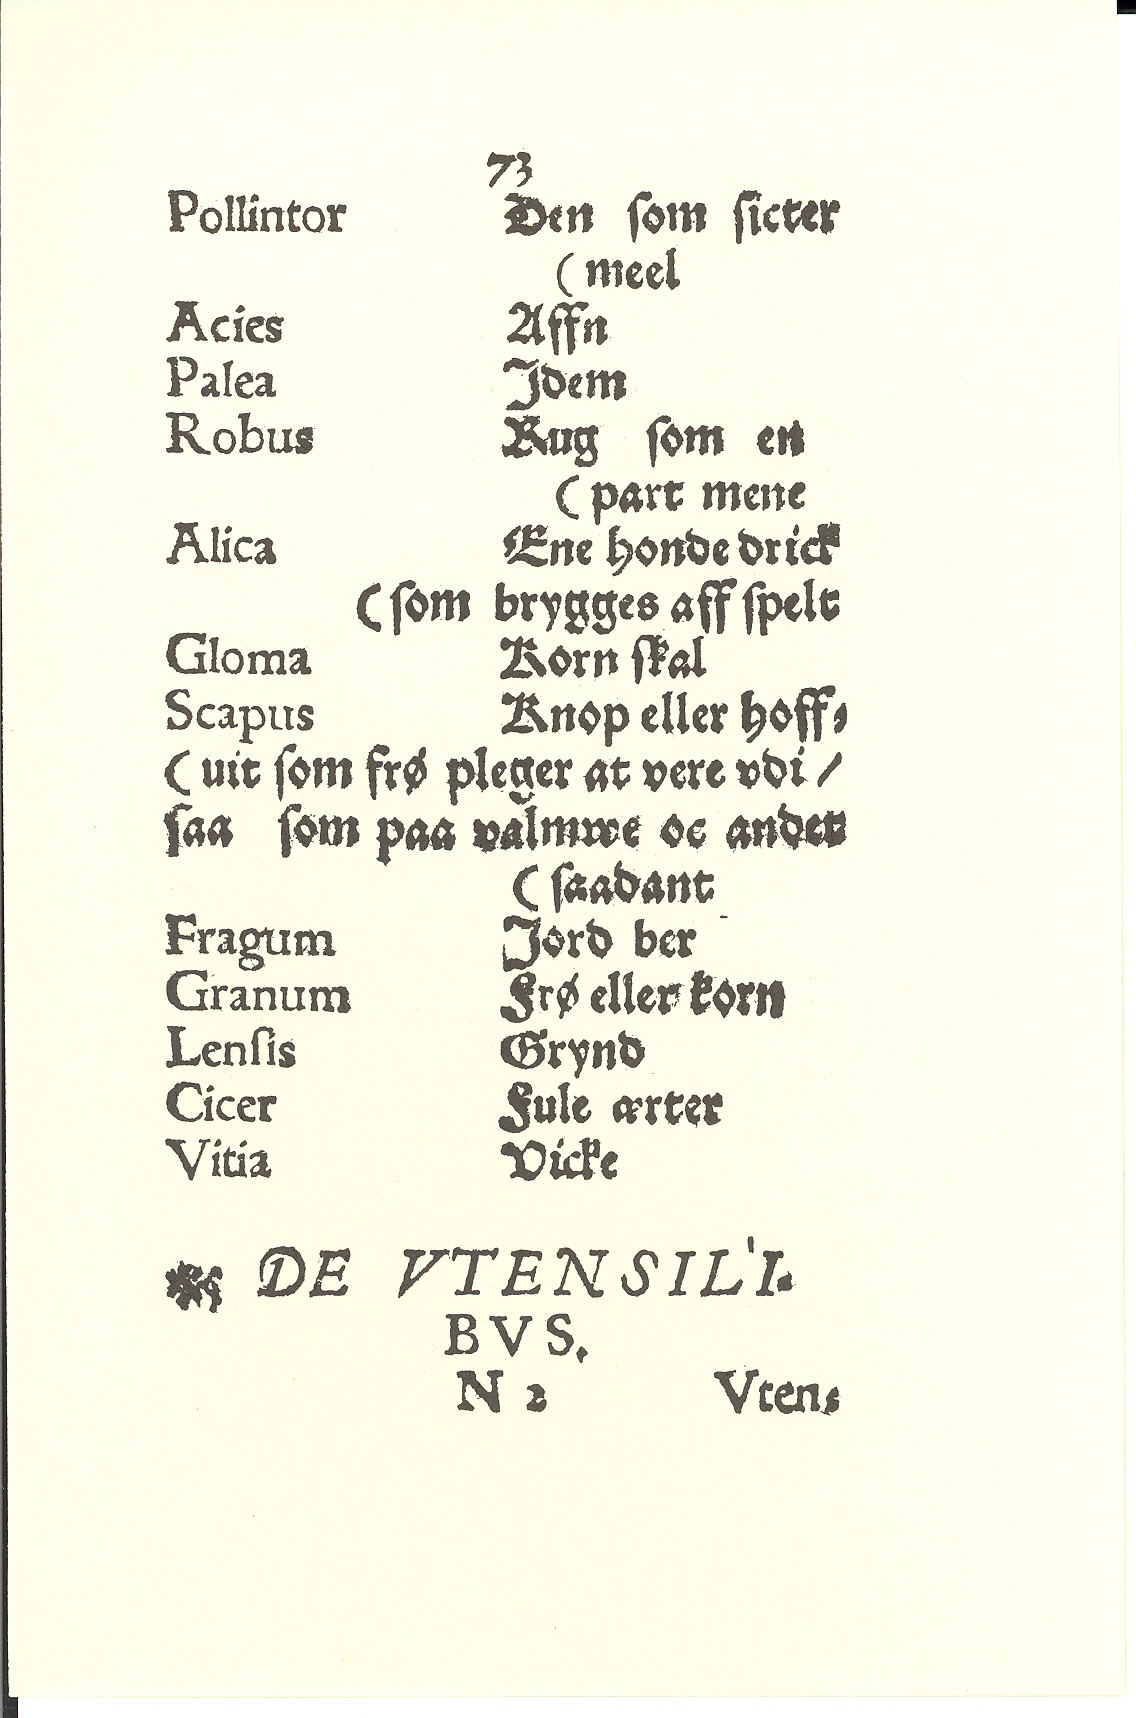 73
Pollintor Den ſom ſicter
(meel
Acies Affn
Palea Idem
Robus Rug ſom en
(part mene
Alica Ene honde drick
(ſom brygges aff ſpelt
Gloma Korn ſkal
Scapus Knop eller hoff⸗
(uit ſom frø pleger at vere vdi /
ſaa ſom paa valmwe oc andet
(ſaadant
Fragum Jord ber
Granum Frø eller korn
Lenſis Grynd
Cicer Fule ærter
Vitia Vicke
DE VTENSILI⸗
BVS.
N 2 Vten⸗